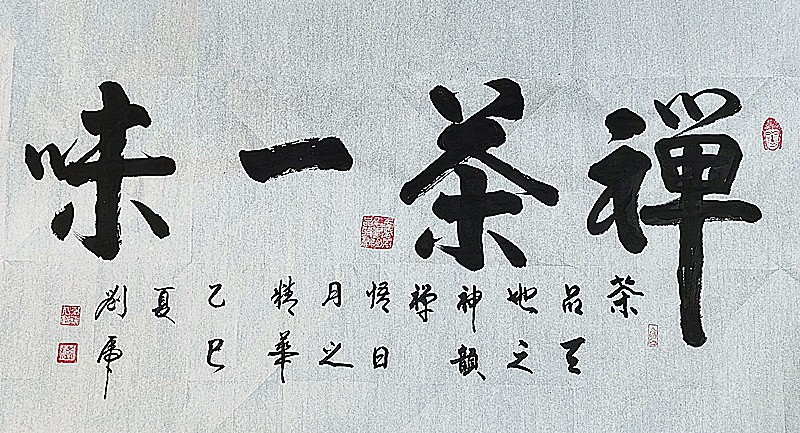 禪茶一味
茶
品天
地之
神韻
禪
悟日
月之
精華
乙巳
夏
劉虎